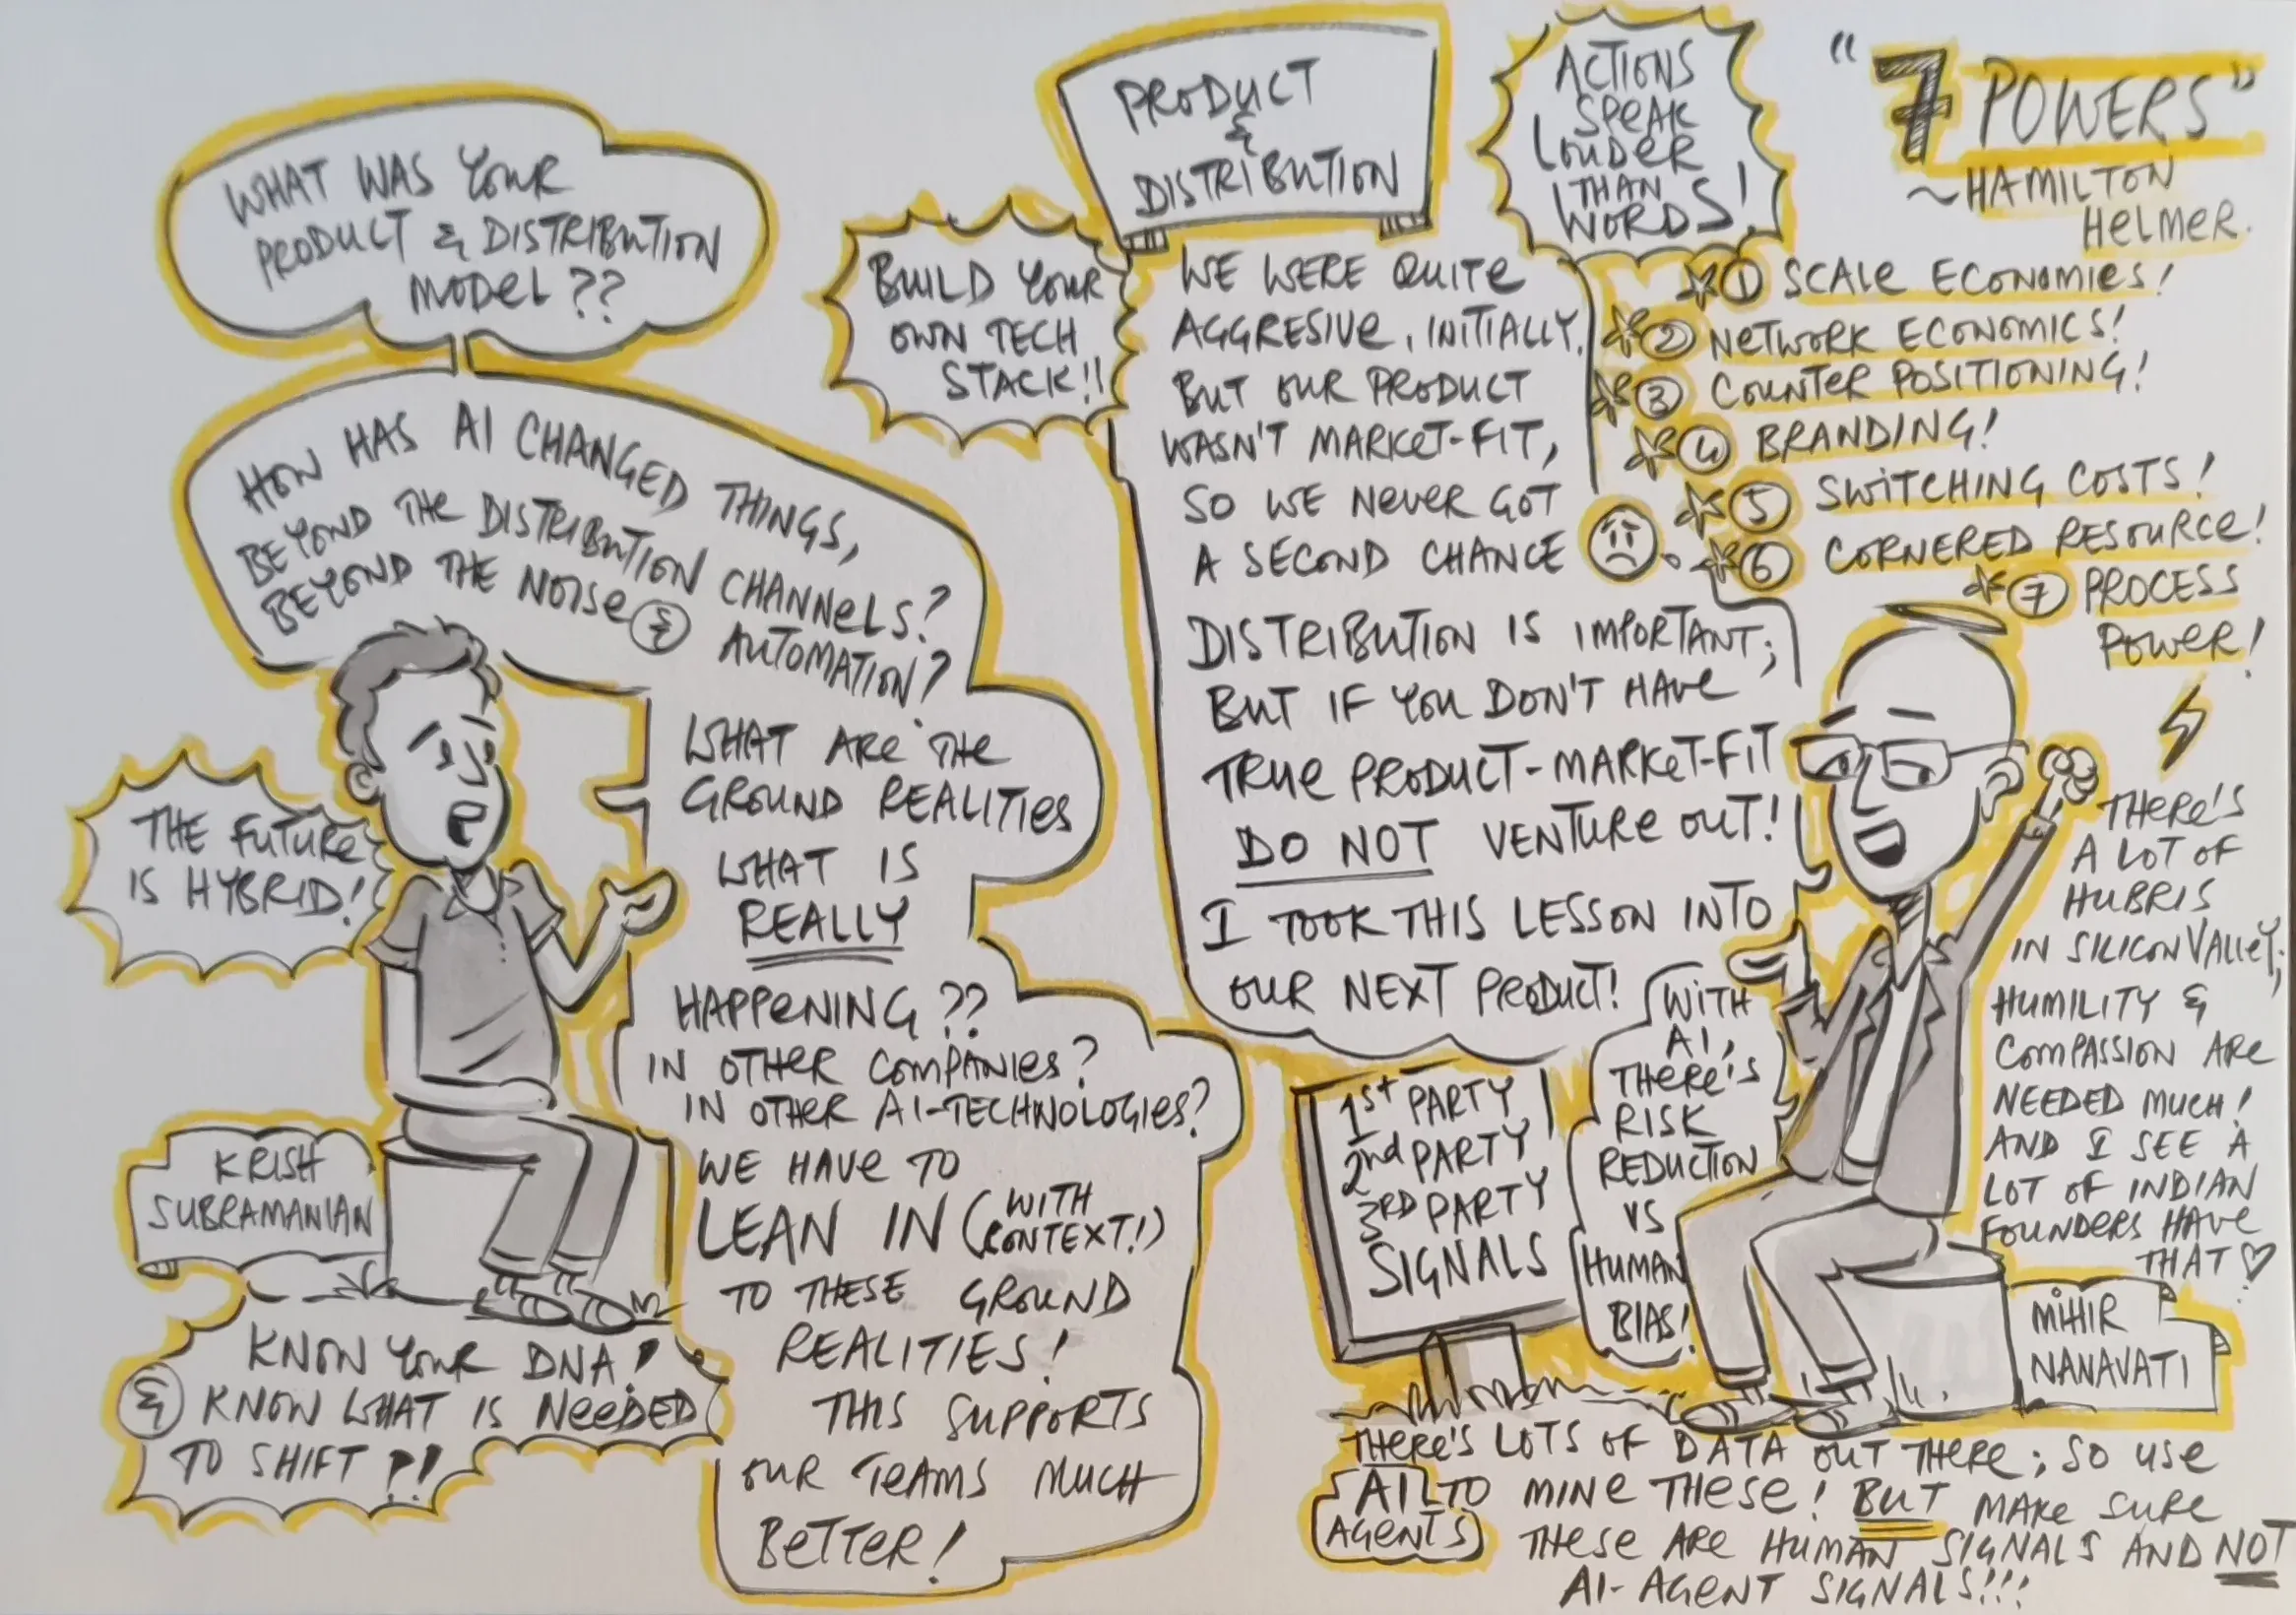 WHAT WAS YOUR
PRODUCT & DISTRIBUTION
MODEL??
HOW HAS AI CHANGED THINGS,
BEYOND THE DISTRIBUTION CHANNELS?
BEYOND THE NOISE & AUTOMATION?
WHAT ARE THE
GROUND REALITIES
WHAT IS
REALLY
HAPPENING??
IN OTHER COMPANIES?
IN OTHER AI-TECHNOLOGIES?
WE HAVE TO
LEAN IN (WITH
CONTEXT!)
TO THESE GROUND
REALITIES!
THIS SUPPORTS
OUR TEAMS MUCH
BETTER!
THE FUTURE
IS HYBRID!
KRISH
SUBRAMANIAN
KNOW YOUR DNA!
& KNOW WHAT IS NEEDED
TO SHIFT ?!
BUILD YOUR
OWN TECH
STACK!!
PRODUCT
&
DISTRIBUTION
WE WERE QUITE
AGGRESIVE, INITIALLY,
BUT OUR PRODUCT
WASN'T MARKET-FIT,
SO WE NEVER GOT
A SECOND CHANCE
DISTRIBUTION IS IMPORTANT;
BUT IF YOU DON'T HAVE
TRUE PRODUCT-MARKET-FIT
DO NOT VENTURE OUT!
I TOOK THIS LESSON INTO
OUR NEXT PRODUCT!
ACTIONS
SPEAK
LOUDER
THAN
WORDS!
"7 POWERS"
~HAMILTON
HELMER.
1 SCALE ECONOMIES!
2 NETWORK ECONOMICS!
3 COUNTER POSITIONING!
4 BRANDING!
5 SWITCHING COSTS!
6 CORNERED RESOURCE!
7 PROCESS
POWER!
THERE'S
A LOT OF
HUBRIS
IN SILICON VALLEY;
HUMILITY &
COMPASSION ARE
NEEDED MUCH!
AND I SEE A
LOT OF INDIAN
FOUNDERS HAVE
THAT ♡
MIHIR
NANAVATI
WITH
AI,
THERE'S
RISK
REDUCTION
VS
HUMAN
BIAS!
1ST PARTY
2nd PARTY
3RD PARTY
SIGNALS
THERE'S LOTS OF DATA OUT THERE; SO USE
AI TO MINE THESE! BUT MAKE SURE
AGENTS THESE ARE HUMAN SIGNALS AND NOT
AI-AGENT SIGNALS!!!